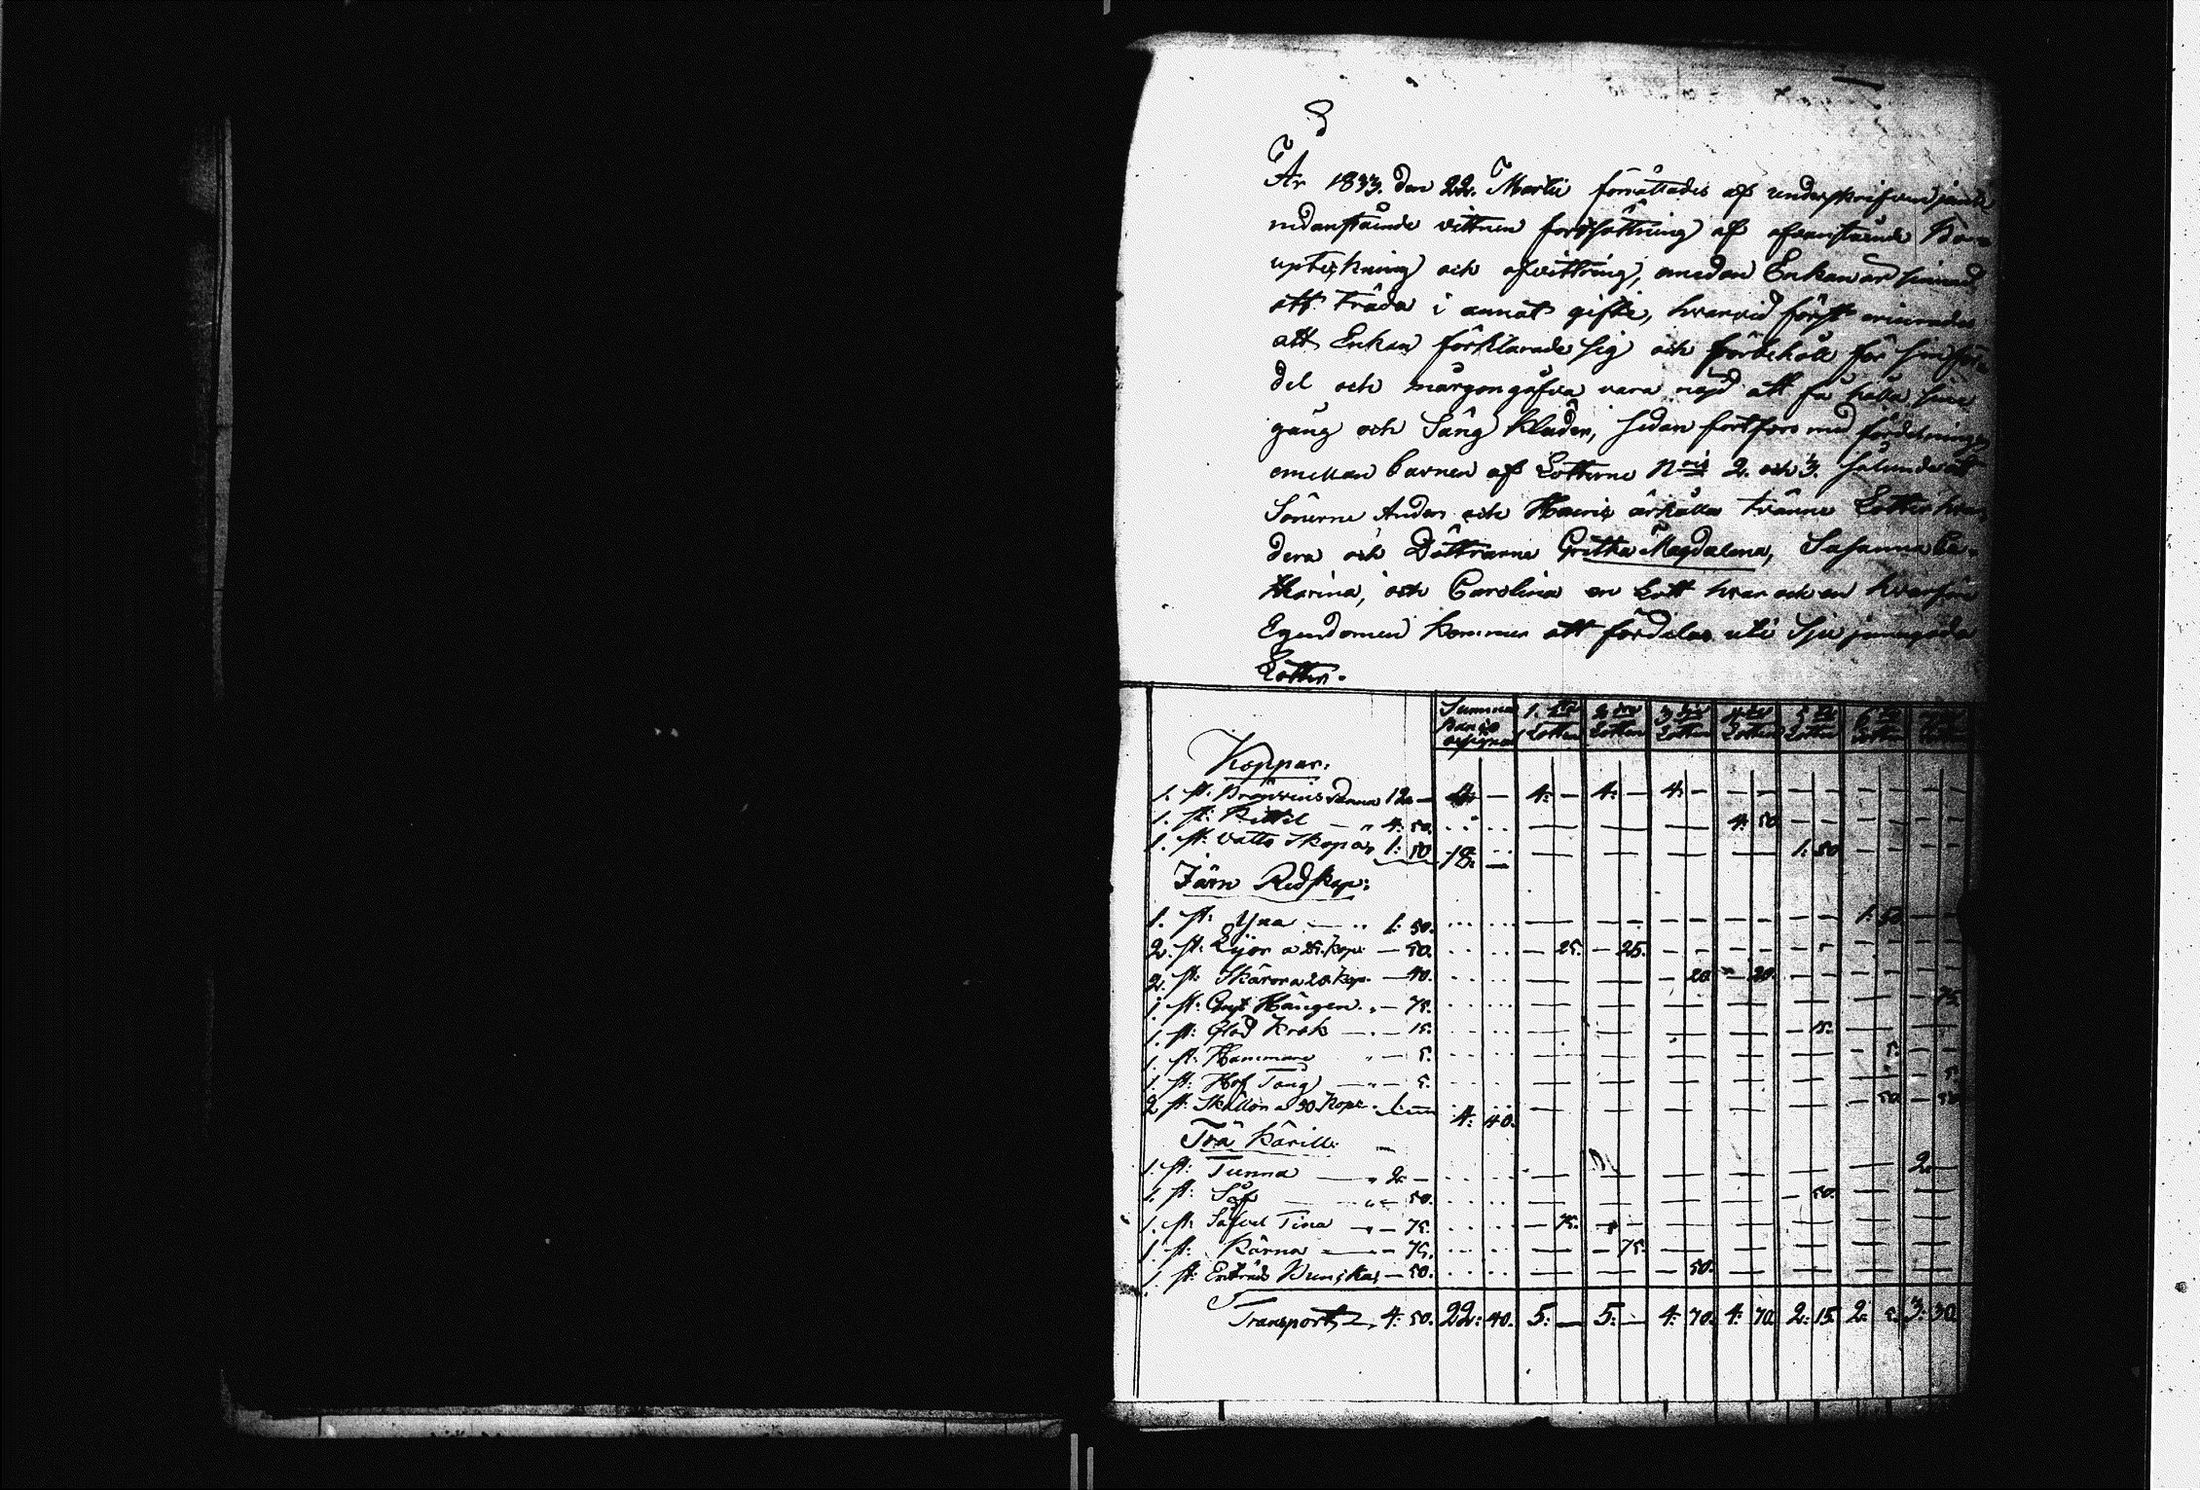 År 1833. den 22. Martii förrättades af underskrifven jämte
nedanstående vittnen fortsättning af ofvanstående Bo-
upteckning och afvittring, emedan Enkan är sinnad
att träda i annat gifte, hvarvid först erinrades
att Enkan förklarade sig och förbehåll för sin för-
del och mårgongåfva vara nöjd att få hålla sine
gång och Säng kläder, sedan fortfors med fördelningen
emellan barnen af Lotterne N:ris 2. och 3. sålunda att
Sönerne Anders och Henric ärhålla tvänne Lotter hvar-
dera och Döttrarne Gretha Magdalena, Susanna Ca-
tharina, och Carolina en Lott hvar och en hvarföre
Egendomen kommer att fördelas uti Sju jemngoda
Lotter.
Summa Banco 1:sta Lotten 2:dra Lotten 3:dje Lotten 4:de Lotten 5:te Lotten 6:te Lotten
Koppar:
1. st: Bränvins Panna 12 — — 4: — 4: — 4: — — — — — — — — —
1. st: Kittel — " 4: 50. — — — 4: 50 — — —
1. st: vatts Skopa " 1: 50 18: — — — — — 1: 50 — — — —
Järn Redskap:
1. st: Yxa — " 1: 50. — — — — — 1: 50 — —
2. st: Lijor a 25. kop: — 50. — 25. — 25. — — — — — — — —
2. st: Skäror a 20. kop. — 40. — — — 20 — 20. — — — — — —
1. st: Hängen " — 75. — — — — — — — 75.
1. st: Glöd krok — — 15. — — — — — 15. — —
1. st: Hammare " — 5. — — — — — — 5. — —
1. st: Hof Tång — " — 5. — — — — — — — 5.
2 st: Skällor a 50. Kop: 1: — 4: 40. — — — — — — 50 — 50
Trä Kärill:
1. st: Tunna — " 2 — — — — — — — 2. —
1. st: Så — " — 50. — — — — — 50. — —
1. st: Tina — " — 75. — 75. — — — — — —
1. st: Kärna — — 75. — — 75. — — — — —
1. st: — 50. — — — 50. — — — —
Transport, 4: 50. 22: 40. 5: — 5: — 4: 70. 4: 70. 2: 15. 2: 5. 3: 30.